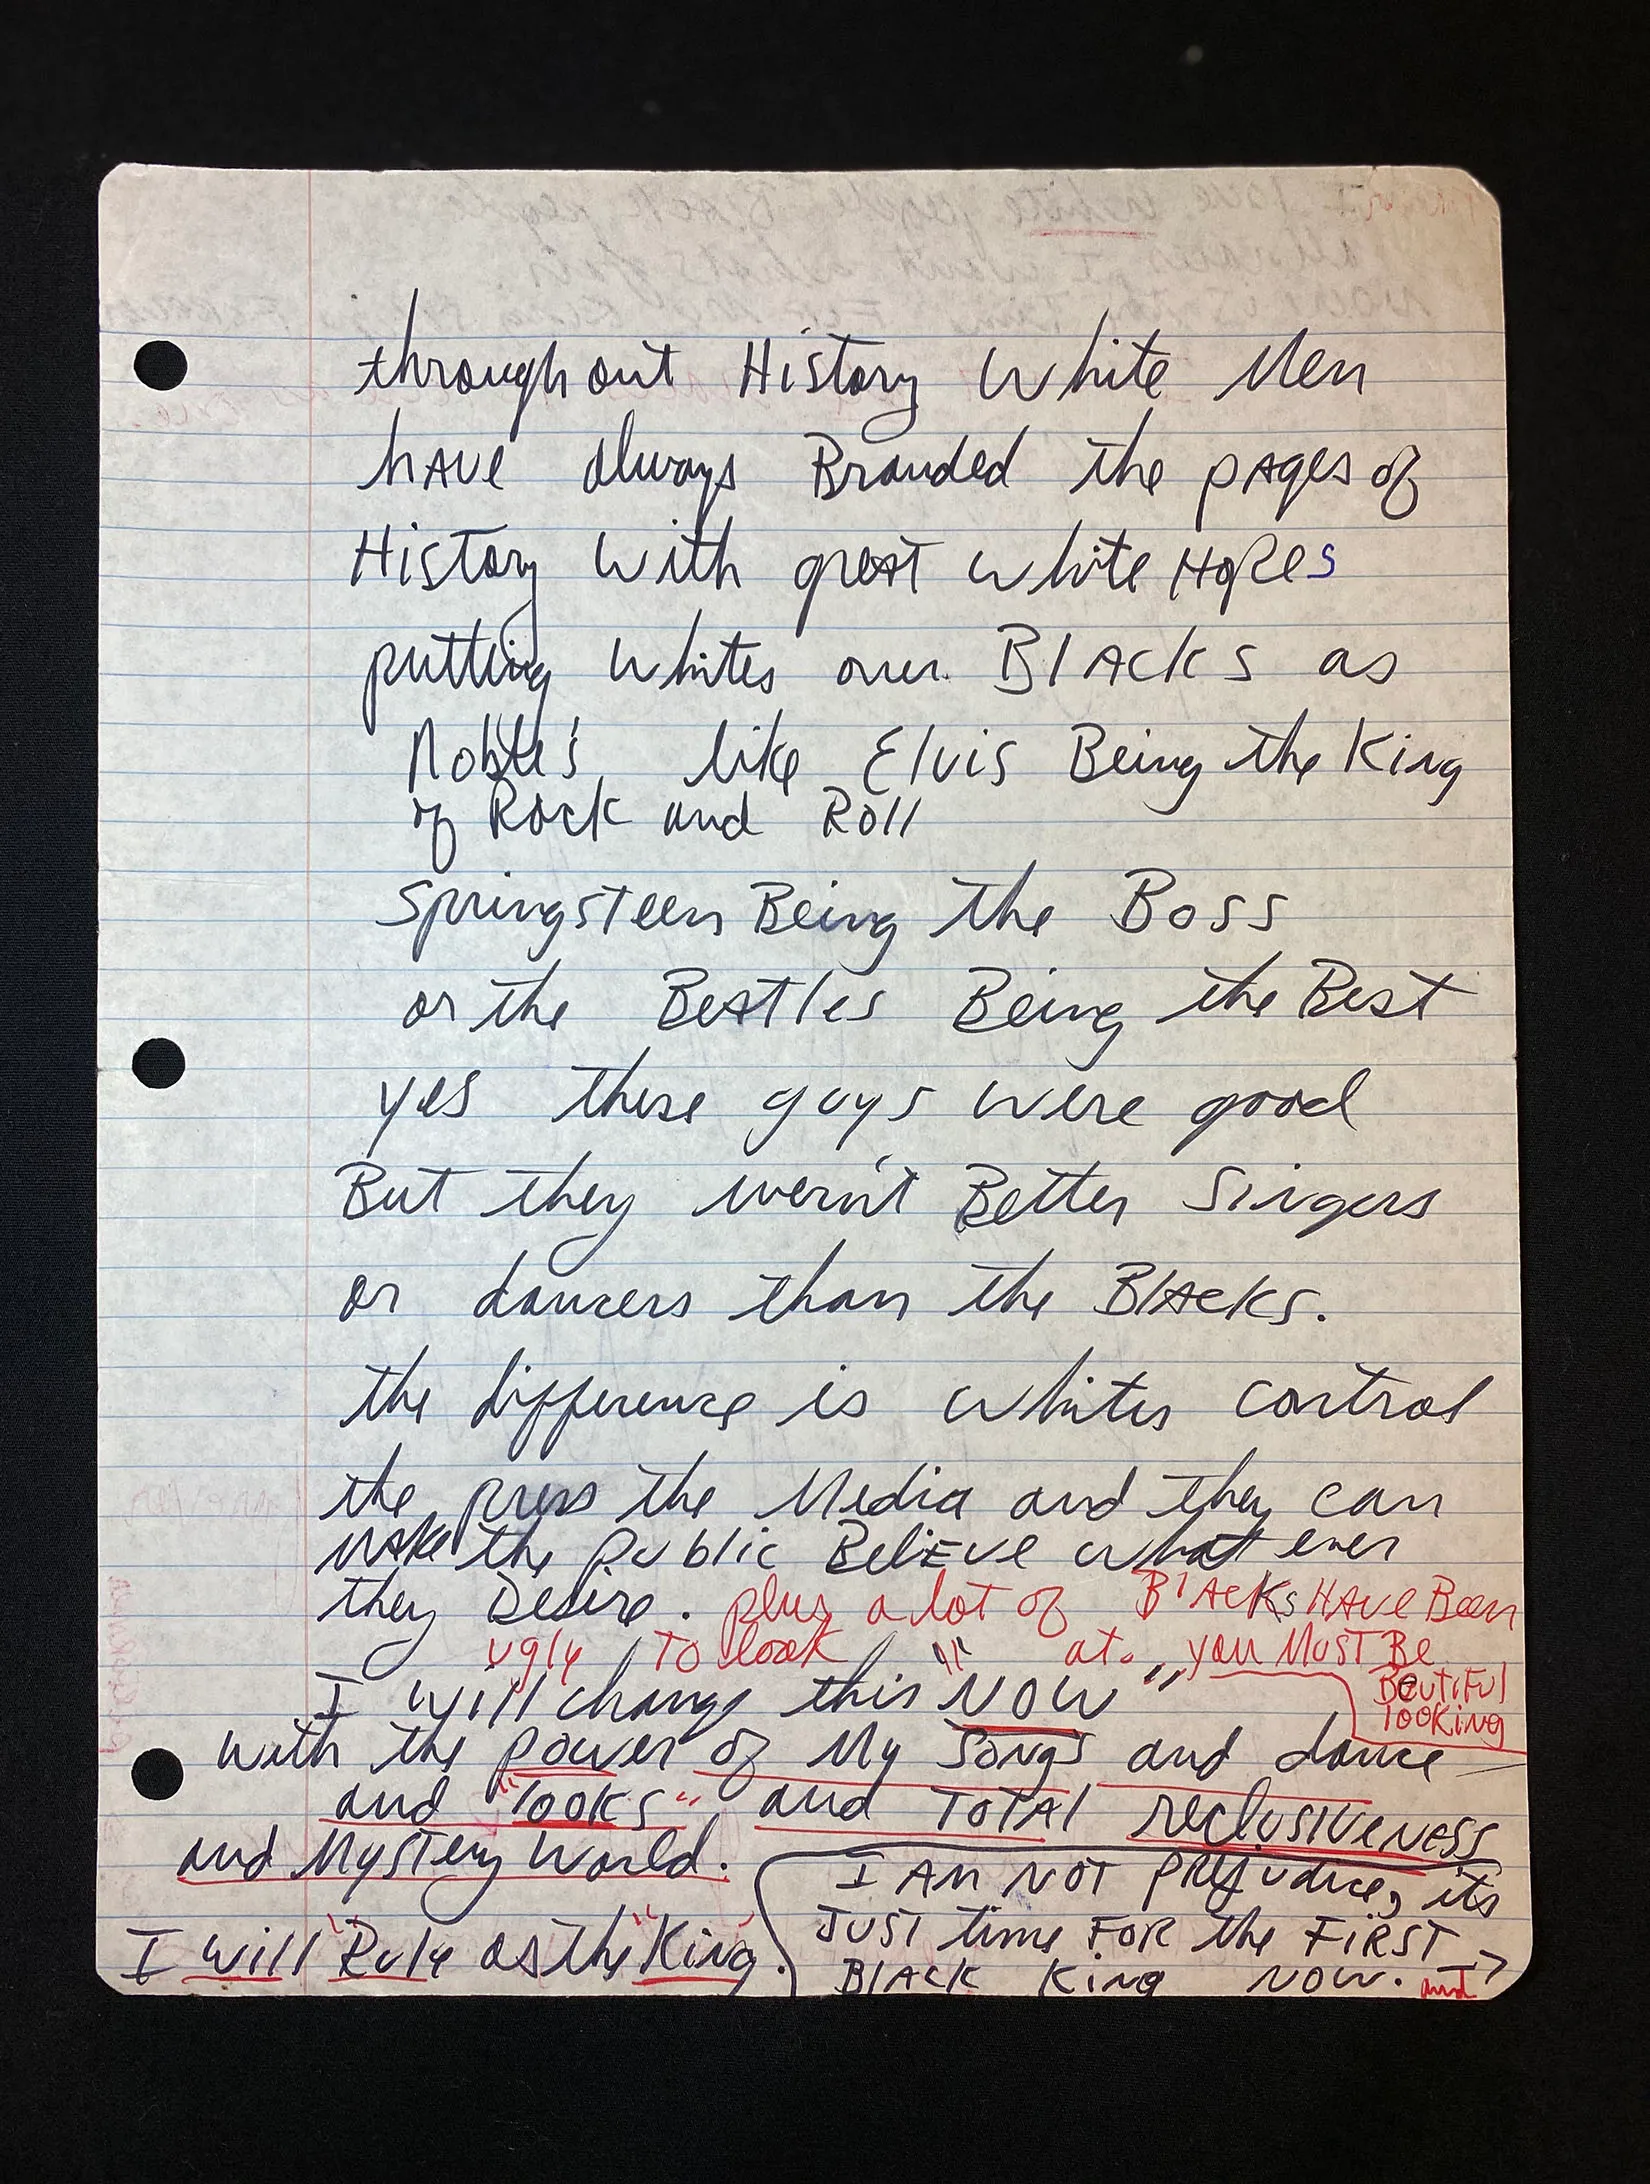 throughout History white Men
have always Branded the pages of
History with great white Hopes
putting whites over Blacks as
Noble's, like Elvis Being the King
of Rock and Roll
Springsteen Being the Boss
or the Beatles Being the Best
yes these guys were good
But they wern't Better Singers
or dancers than the Blacks.
the difference is whites control
the press the Media and they can
make the public Believe what ever
they Desire. plus a lot of Blacks HAVE Been
ugly TO look at. you MUST BE
BeutiFul
looking
I will change this "NOW"
with the power of My songs and dance
and "looks" and TOTAL reclusiveness
and Mystery World.
I AM NOT prejudice, its
JUST time FOR the FIRST
BLACK King NOW. and
I will "Rule" as the "King".